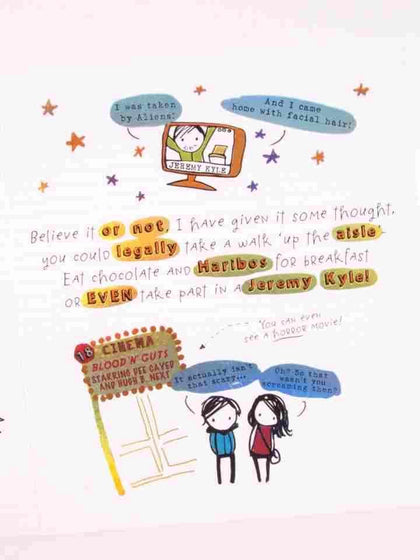 I was taken
by Aliens!
And I came
home with facial hair!
JEREMY KYLE
Believe it or not, I have given it some thought,
you could legally take a walk 'up the aisle'
Eat chocolate and Haribos for breakfast
or EVEN take part in a Jeremy Kyle!
You can even
see a HORROR MOVIE!
18
CINEMA
BLOOD 'N' GUTS
STARRING DEE CAYED
AND HUGH B. NEXT
It actually isn't
that scary...
Oh? So that
wasn't you
screaming then?